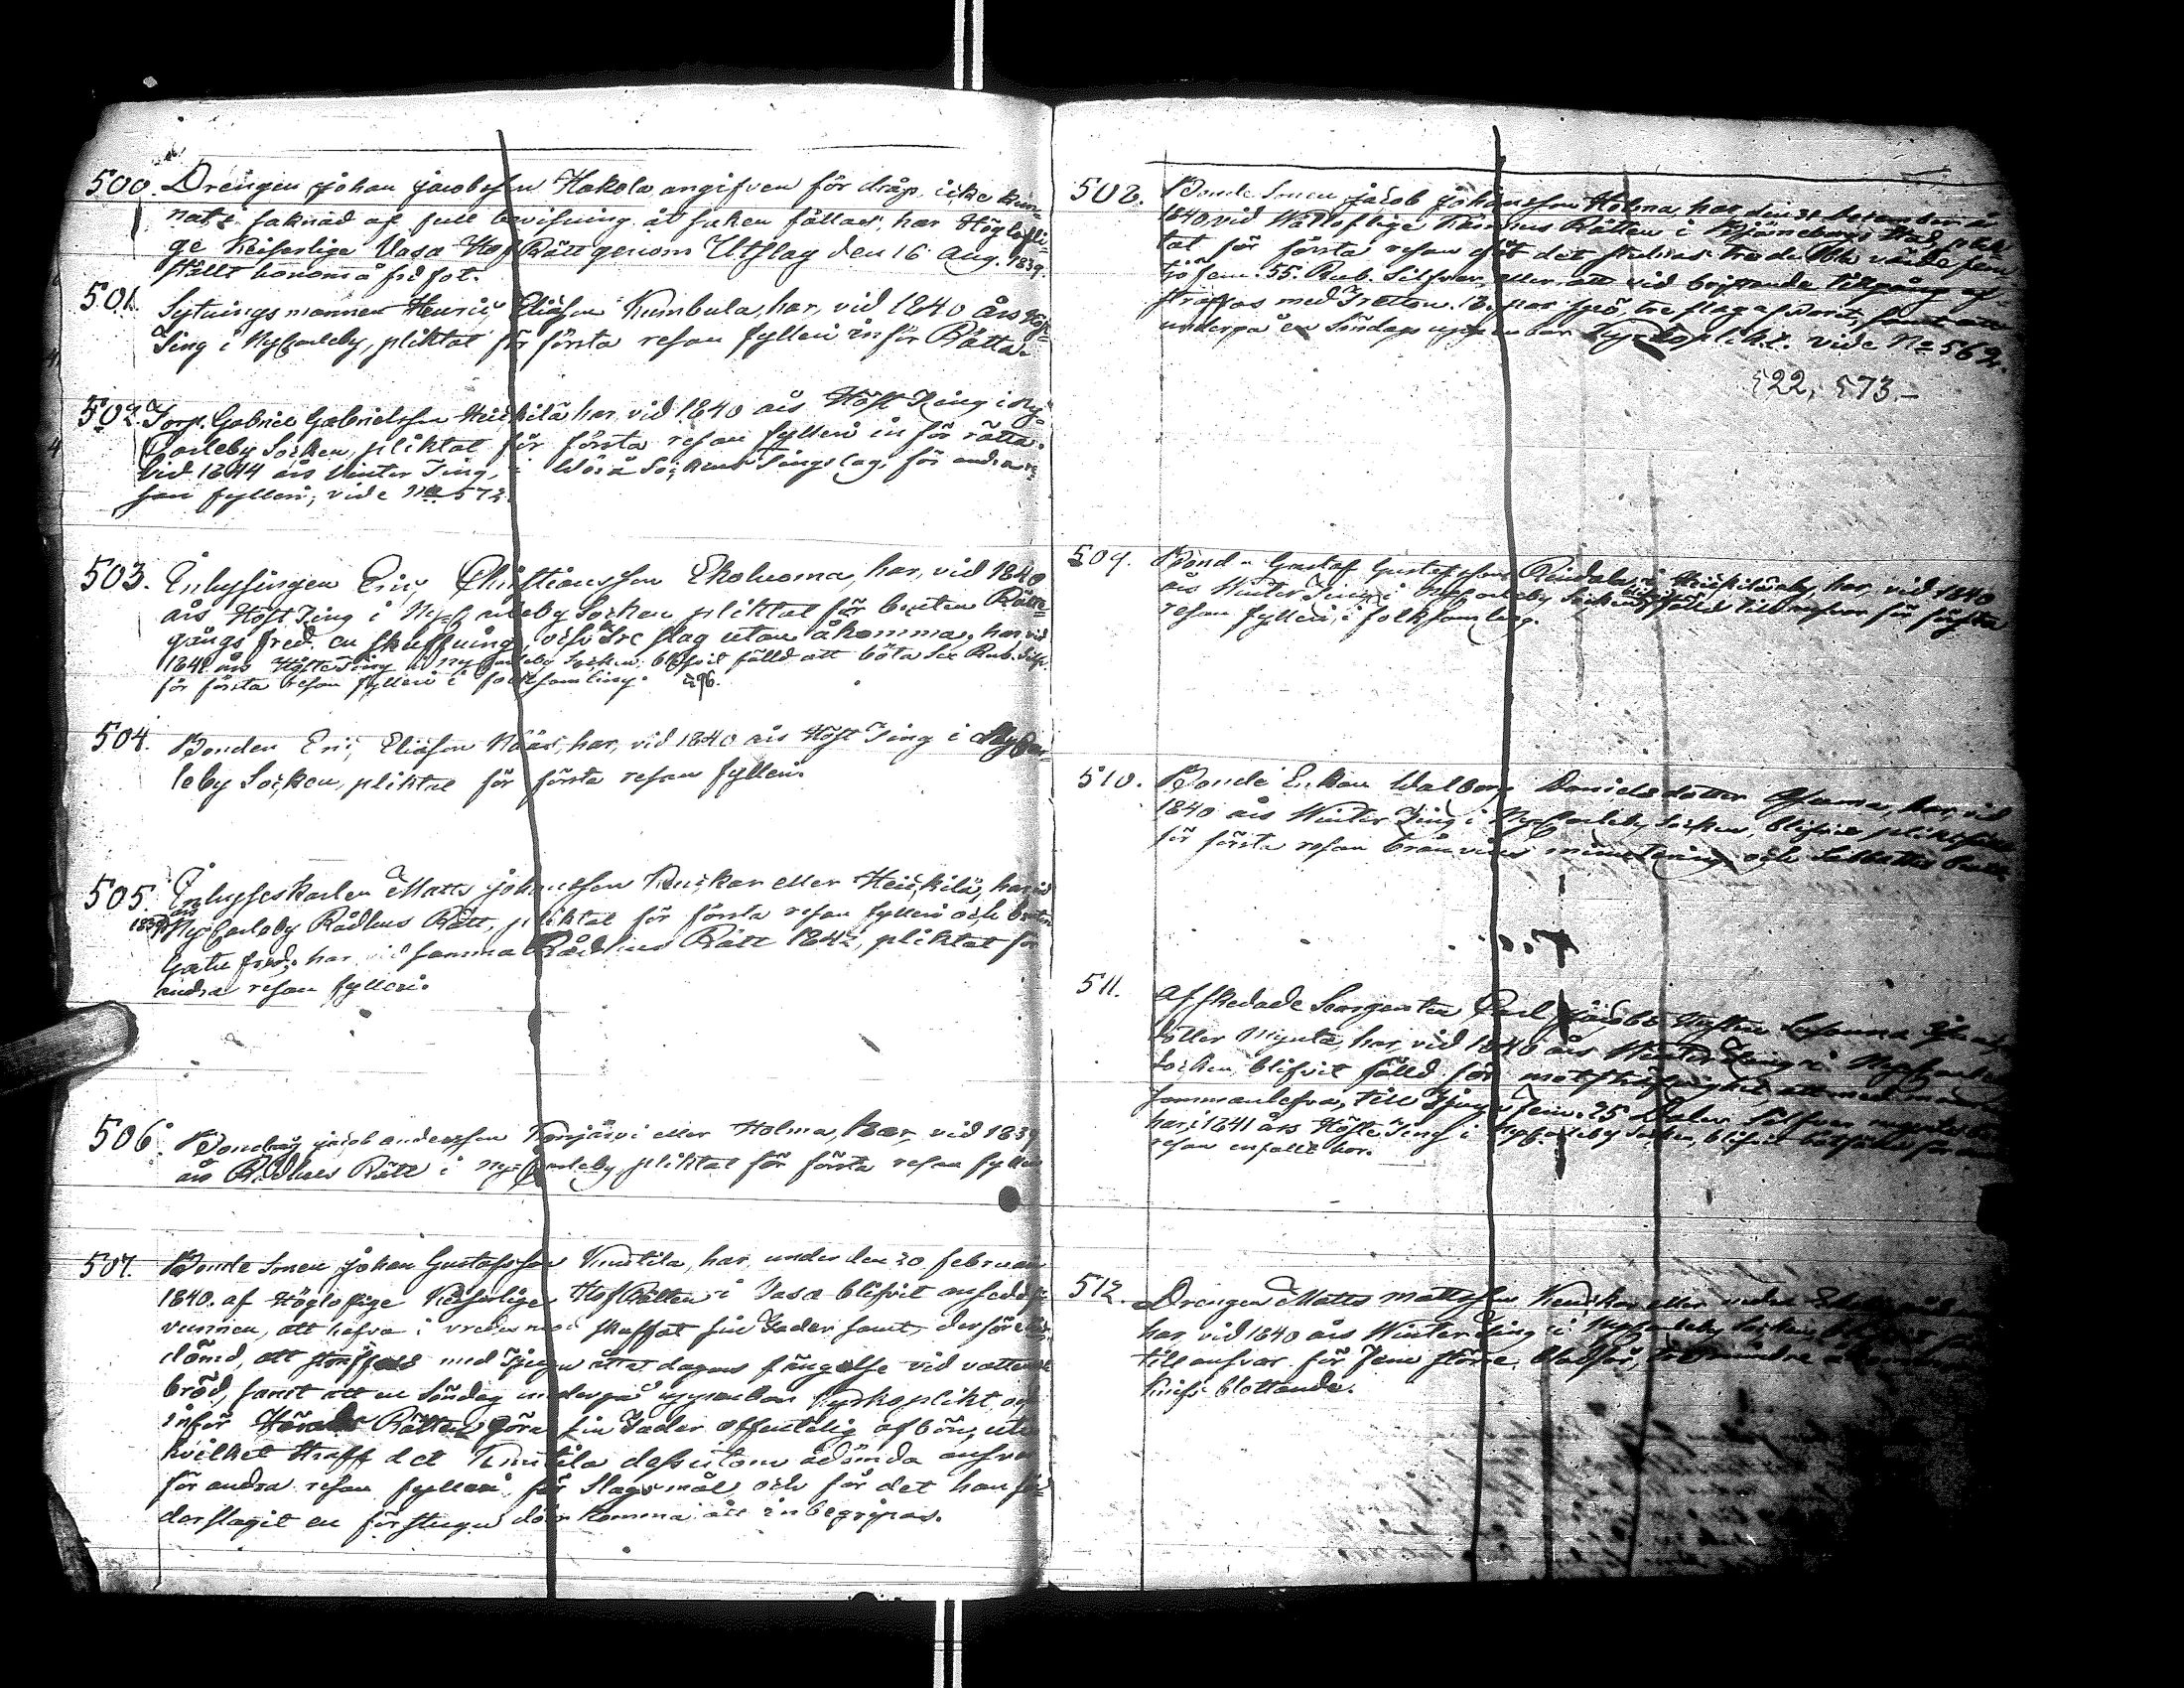 500. Drengen Johan Jacobsson Hakola angifven för dråp, icke kun-
nat i saknad af full bevisning åt saken fällas, har Höglofli-
ge Keiserlige Vasa Hof Rätt genom Utslag den 16 Aug. 1839.
ställt honom å fri fot.
501. Sytningsmannen Henric Eliasson Kumbula, har, vid 1840 års Höst
Ting i NyCarleby, pliktat för första resan fylleri inför Rätta.
502. Torp. Gabriel Gabrielsson Heickilä har vid 1840 års Höst Ting i Ny-
Carleby Socken, pliktat för första resan fylleri in för rätta.
Vid 1844 års Vinter Ting, i Wörå Sockens Tingslag, för andra re-
san fylleri, vide No 572.
503. Inhysingen Eric Christiansson Ekoluoma, har, vid 1840
års Höst Ting i NyCarleby Socken pliktat för bruten Rätte-
gångs fred. en skuffning, och Tre slag utan åkomma, har vid
1841 års Höste Ting i NyCarleby Socken, blifvit fälld att böta Sex Rub. Silf.
för första resan fylleri i folksamling. 596.
504. Bonden Eric Eliasson Näär, har, vid 1840 års Höst Ting i NyCar-
leby Socken, pliktat för första resan fylleri.
505. Inhyseskarlen Matts Johansson Kuckar eller Heickilä, har vid
års
1839 NyCarleby Rådhus Rätt, pliktat för första resan fylleri och bruten
Gatu fred, har vid samma Rådhus Rätt 1842, pliktat för
andra resan fylleri.
506. Jacob Andersson Korsjärvi eller Holma, har, vid 1839
års Rådhus Rätt i NyCarleby, pliktat för första resan fylleri
507. Bonde Sonen Johan Gustafsson Knutila, har, under den 20 februari
1840. af Högloflige Keiserlige Hof Rätten i Vasa blifvit ansedd
vunnen, att hafva i vredes mod skuffat sin Fader samt, derföre
dömd, att straffas med Tjugu åtta dagars fängelse vid vatten
bröd, samt att en Söndag undergå uppenbar Kyrkoplikt och
inför Härads Rätten göra sin Fader offentelig afbön, uti
hvilket straff det Knutila dessutom ådömda ansvar
för andra resan fylleri, för Slagsmål och för det han sön-
derslagit en förstugu dörr komma att inbegripas.
508. Bonde Sonen Jacob Johansson Holma, har den 31 december år
1840, vid Wälloflige Kämners Rätten i Björneborgs Stad, plik-
tat för första resan det stulnas tredubbla värde fem
tio fem. 55. Rub. Silfver, eller att vid bristande tillgång af-
straffas med Tretton. 13. par spö, tre slag af paret, samt att
undergå en Söndags uppenbar Kyrkoplikt. vide No 562.
522, 573.
509. Bond. Gustaf Gustafsson Rindala, i Heickiläby, har, vid 1840
års Winter Ting i NyCarleby Socken, blifvit fälld till ansvar för första
resan fylleri, i folksamling.
510. Bonde Enkan Walborg Danielsdotter har, vid
1840 års Winter Ting i NyCarleby Socken, blifvit pliktfälld
för första resan bränvins minutering och Sabbaths brott.
511. Afskedade Sergenten Carl
har, vid 1840 års Winter Ting i NyCarleby
Socken, blifvit fälld för
sammanlefva, till Tjugu fem. 25 Daler Silfver
har i 1841 års Höste Ting i NyCarleby Socken, blifvit botfälld för
resan enfallt hor.
512. Drengen Matts Mattsson
har, vid 1840 års Winter Ting i NyCarleby Socken, blifvit
till ansvar för Fem större blodsår, två mindre
Knifs blottande.